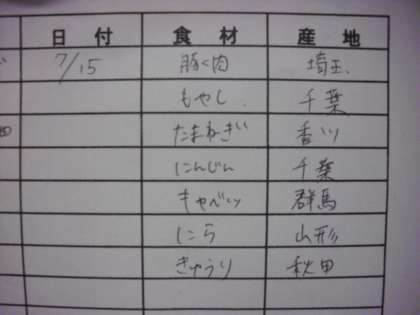 日付 食材 産地
7/15 豚肉 埼玉
もやし 千葉
たまねぎ 香川
にんじん 千葉
キャベツ 群馬
にら 山形
きゅうり 秋田